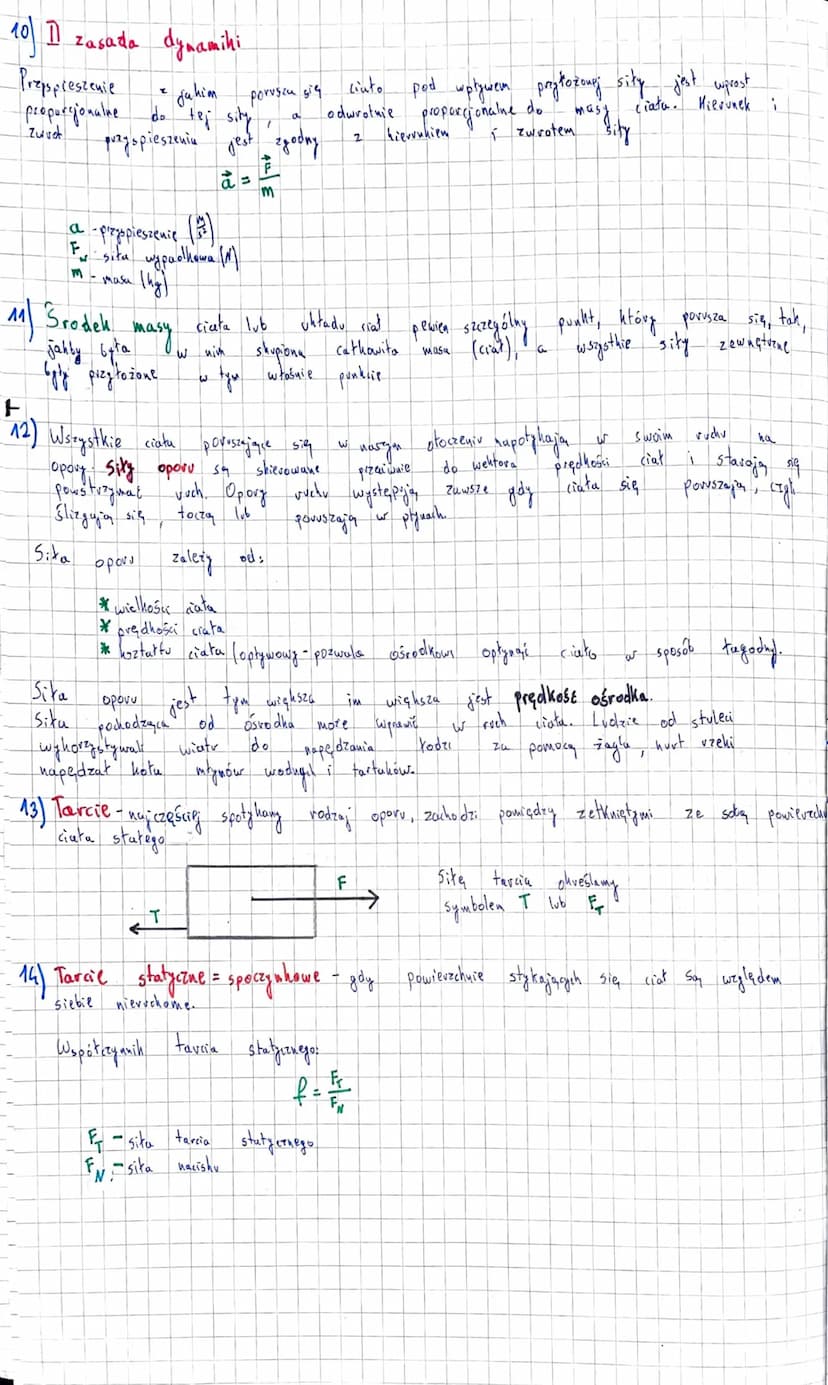 10) II zasada dynamiki
Przyspieszenie z jakim porusza się ciało pod wpływem przyłożonej siły jest wprost
proporcjonalne do tej siły, a odwrotnie proporcjonalne do masy ciała. Kierunek i
zwrot przyspieszenia jest zgodny z kierunkiem i zwrotem siły
a = F/m
a - przyspieszenie (m/s²)
Fw - siła wypadkowa (N)
m - masa (kg)
11) Środek masy ciała lub układu ciał pewien szczególny punkt, który porusza się, tak,
jakby była w nim skupiona całkowita masa (ciał), a wszystkie siły zewnętrzne
były przyłożone w tym właśnie punkcie
12) Wszystkie ciała poruszające się w naszym otoczeniu napotykają w swoim ruchu na
opory. Siły oporu są skierowane przeciwnie do wektora prędkości ciał i starają się
powstrzymać ruch. Opory ruchu występują zawsze gdy ciała się poruszają, czyli
ślizgują się, toczą lub poruszają w płynach.
Siła oporu zależy od:
* wielkości ciała
* prędkości ciała
* kształtu ciała (opływowy - pozwala ośrodkowi opłynąć ciało w sposób łagodny.
Siła oporu jest tym większa im większa jest prędkość ośrodka.
Siła pochodząca od ośrodka może wprawić w ruch ciała. Ludzie od stuleci
wykorzystywali wiatr do napędzania łodzi za pomocą żagla, nurt rzeki
napędzał koła młynów wodnych i tartaków.
13) Tarcie - najczęściej spotykany rodzaj oporu, zachodzi pomiędzy zetkniętymi ze sobą powierzch
ciała stałego
F
T
Siłę tarcia określamy
symbolem T lub FT
14) Tarcie statyczne = spoczynkowe - gdy powierzchnie stykających się ciał są względem
siebie nieruchome.
Współczynnik tarcia statycznego:
f = FT/FN
FT - siła tarcia statycznego
FN - siła nacisku